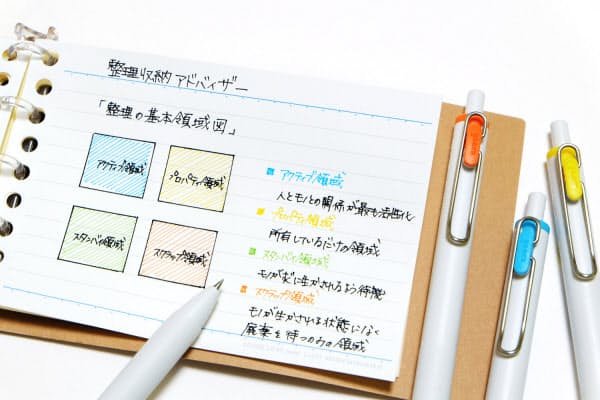 整理収納アドバイザー
「整理の基本領域図」
アクティブ領域
プロパティ領域
スタンバイ領域
スクラップ領域
アクティブ領域
人とモノとの関係が最も活性化
プロパティ領域
所有しているだけの領域
スタンバイ領域
モノが次に生かされるよう待機
スクラップ領域
モノが生かされる状態になく
廃棄を待つのみの領域